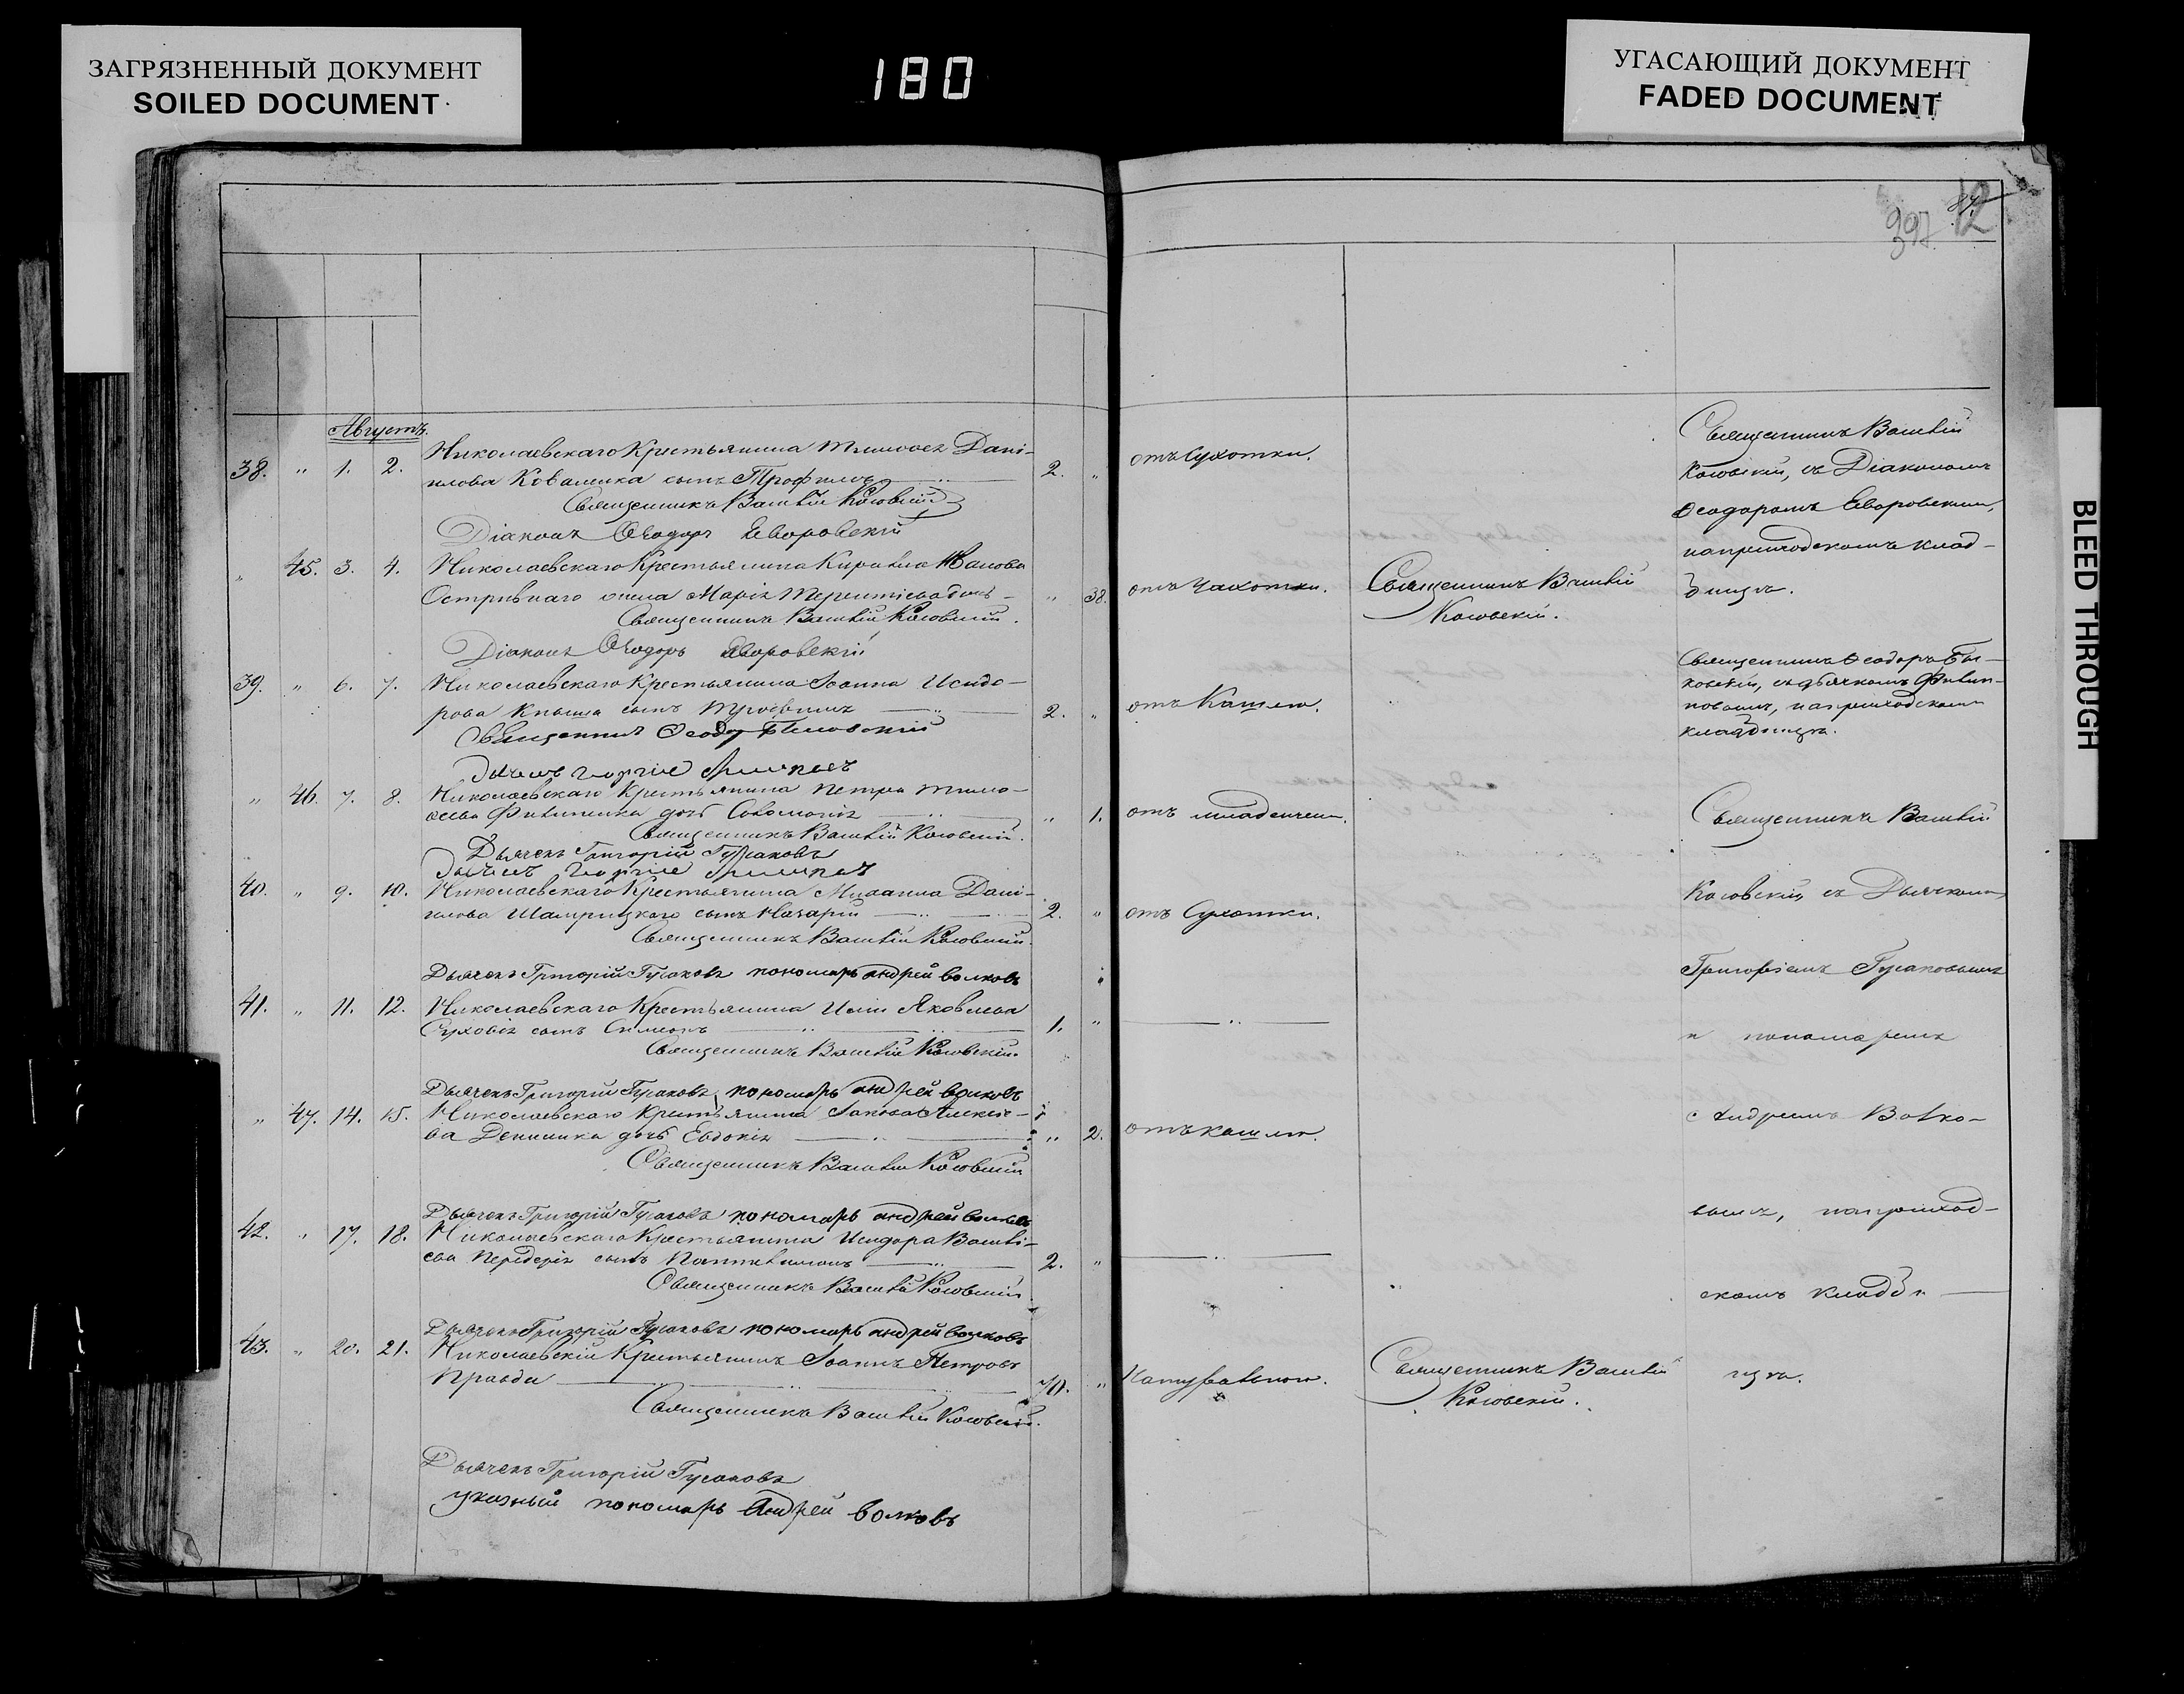 ЗАГРЯЗНЕННЫЙ ДОКУМЕНТ
SOILED DOCUMENT
180
УГАСАЮЩИЙ ДОКУМЕНТ
FADED DOCUMENT
BLEED THROUGH
397 12
Августъ.
38. " 1. 2. Николаевскаго Крестьянина Тимоѳея Дані-
илова Коваленка сынъ Трофимъ 2. " отъ Сухотки.
Священникъ Василій Косовскій
Діаконъ Ѳеодоръ Яворовскій
" 45. 3. 4. Николаевскаго Крестьянина Кирилла Иванова
Остривнаго жена Марія Терентіева дочь " 38. отъ Чахотки. Священникъ Василій
Косовскій.
Священникъ Василій Косовскій.
Діаконъ Ѳеодоръ Яворовскій
Священникъ Василій
Косовскій, съ Діакономъ
Ѳеодоромъ Яворовскимъ,
на приходскомъ клад-
бищѣ.
39. " 6. 7. Николаевскаго Крестьянина Іоанна Исидо-
рова Кныша сынъ Трофимъ 2. " отъ Кашлю.
Священникъ Ѳеодоръ
Священникъ Ѳеодоръ
съ дьячкомъ
на приходскомъ
кладбищѣ.
" 46. 7. 8. Николаевскаго Крестьянина Петра Тимо-
ѳеева дочь Соломонія " 1. отъ младенчеш.
Священникъ Василій Косовскій.
Дьячекъ Григорій Гусаковъ
40. " 9. 10. Николаевскаго Крестьянина Михаила Дані-
илова сынъ Назарій 2. " отъ Сухотки.
Священникъ Василій Косовскій.
Дьячекъ Григорій Гусаковъ пономарь андрей волковъ
41. " 11. 12. Николаевскаго Крестьянина Иліи Яковлева
Суховія сынъ Симеонъ 1. "
Священникъ Василій Косовскій.
Дьячекъ Григорій Гусаковъ, пономарь андрей волковъ
" 47. 14. 15. Николаевскаго Крестьянина Іакова Алексіе-
ва Денишка дочь Евдокія " 2. отъ кашлю.
Священникъ Василій Косовскій
Дьячекъ Григорій Гусаковъ пономарь андрей волковъ
42. " 17. 18. Николаевскаго Крестьянина Исидора Василі-
ева Передерія сынъ Пантелимонъ 2. "
Священникъ Василій Косовскій
Дьячекъ Григорій Гусаковъ пономарь андрей волковъ
43. " 20. 21. Николаевскій Крестьянинъ Іоаннъ Петровъ
Правда 70. " Натуральною. Священникъ Василій
Косовскій.
Священникъ Василій Косовскій.
Дьячекъ Григорій Гусаковъ
указный пономарь Андрей волковъ
Священникъ Василій
Косовскій, съ Дьячкомъ
Григоріемъ Гусаковымъ
и пономаремъ
Андреемъ Волко-
вымъ, на приход-
скомъ кладби-
щѣ.